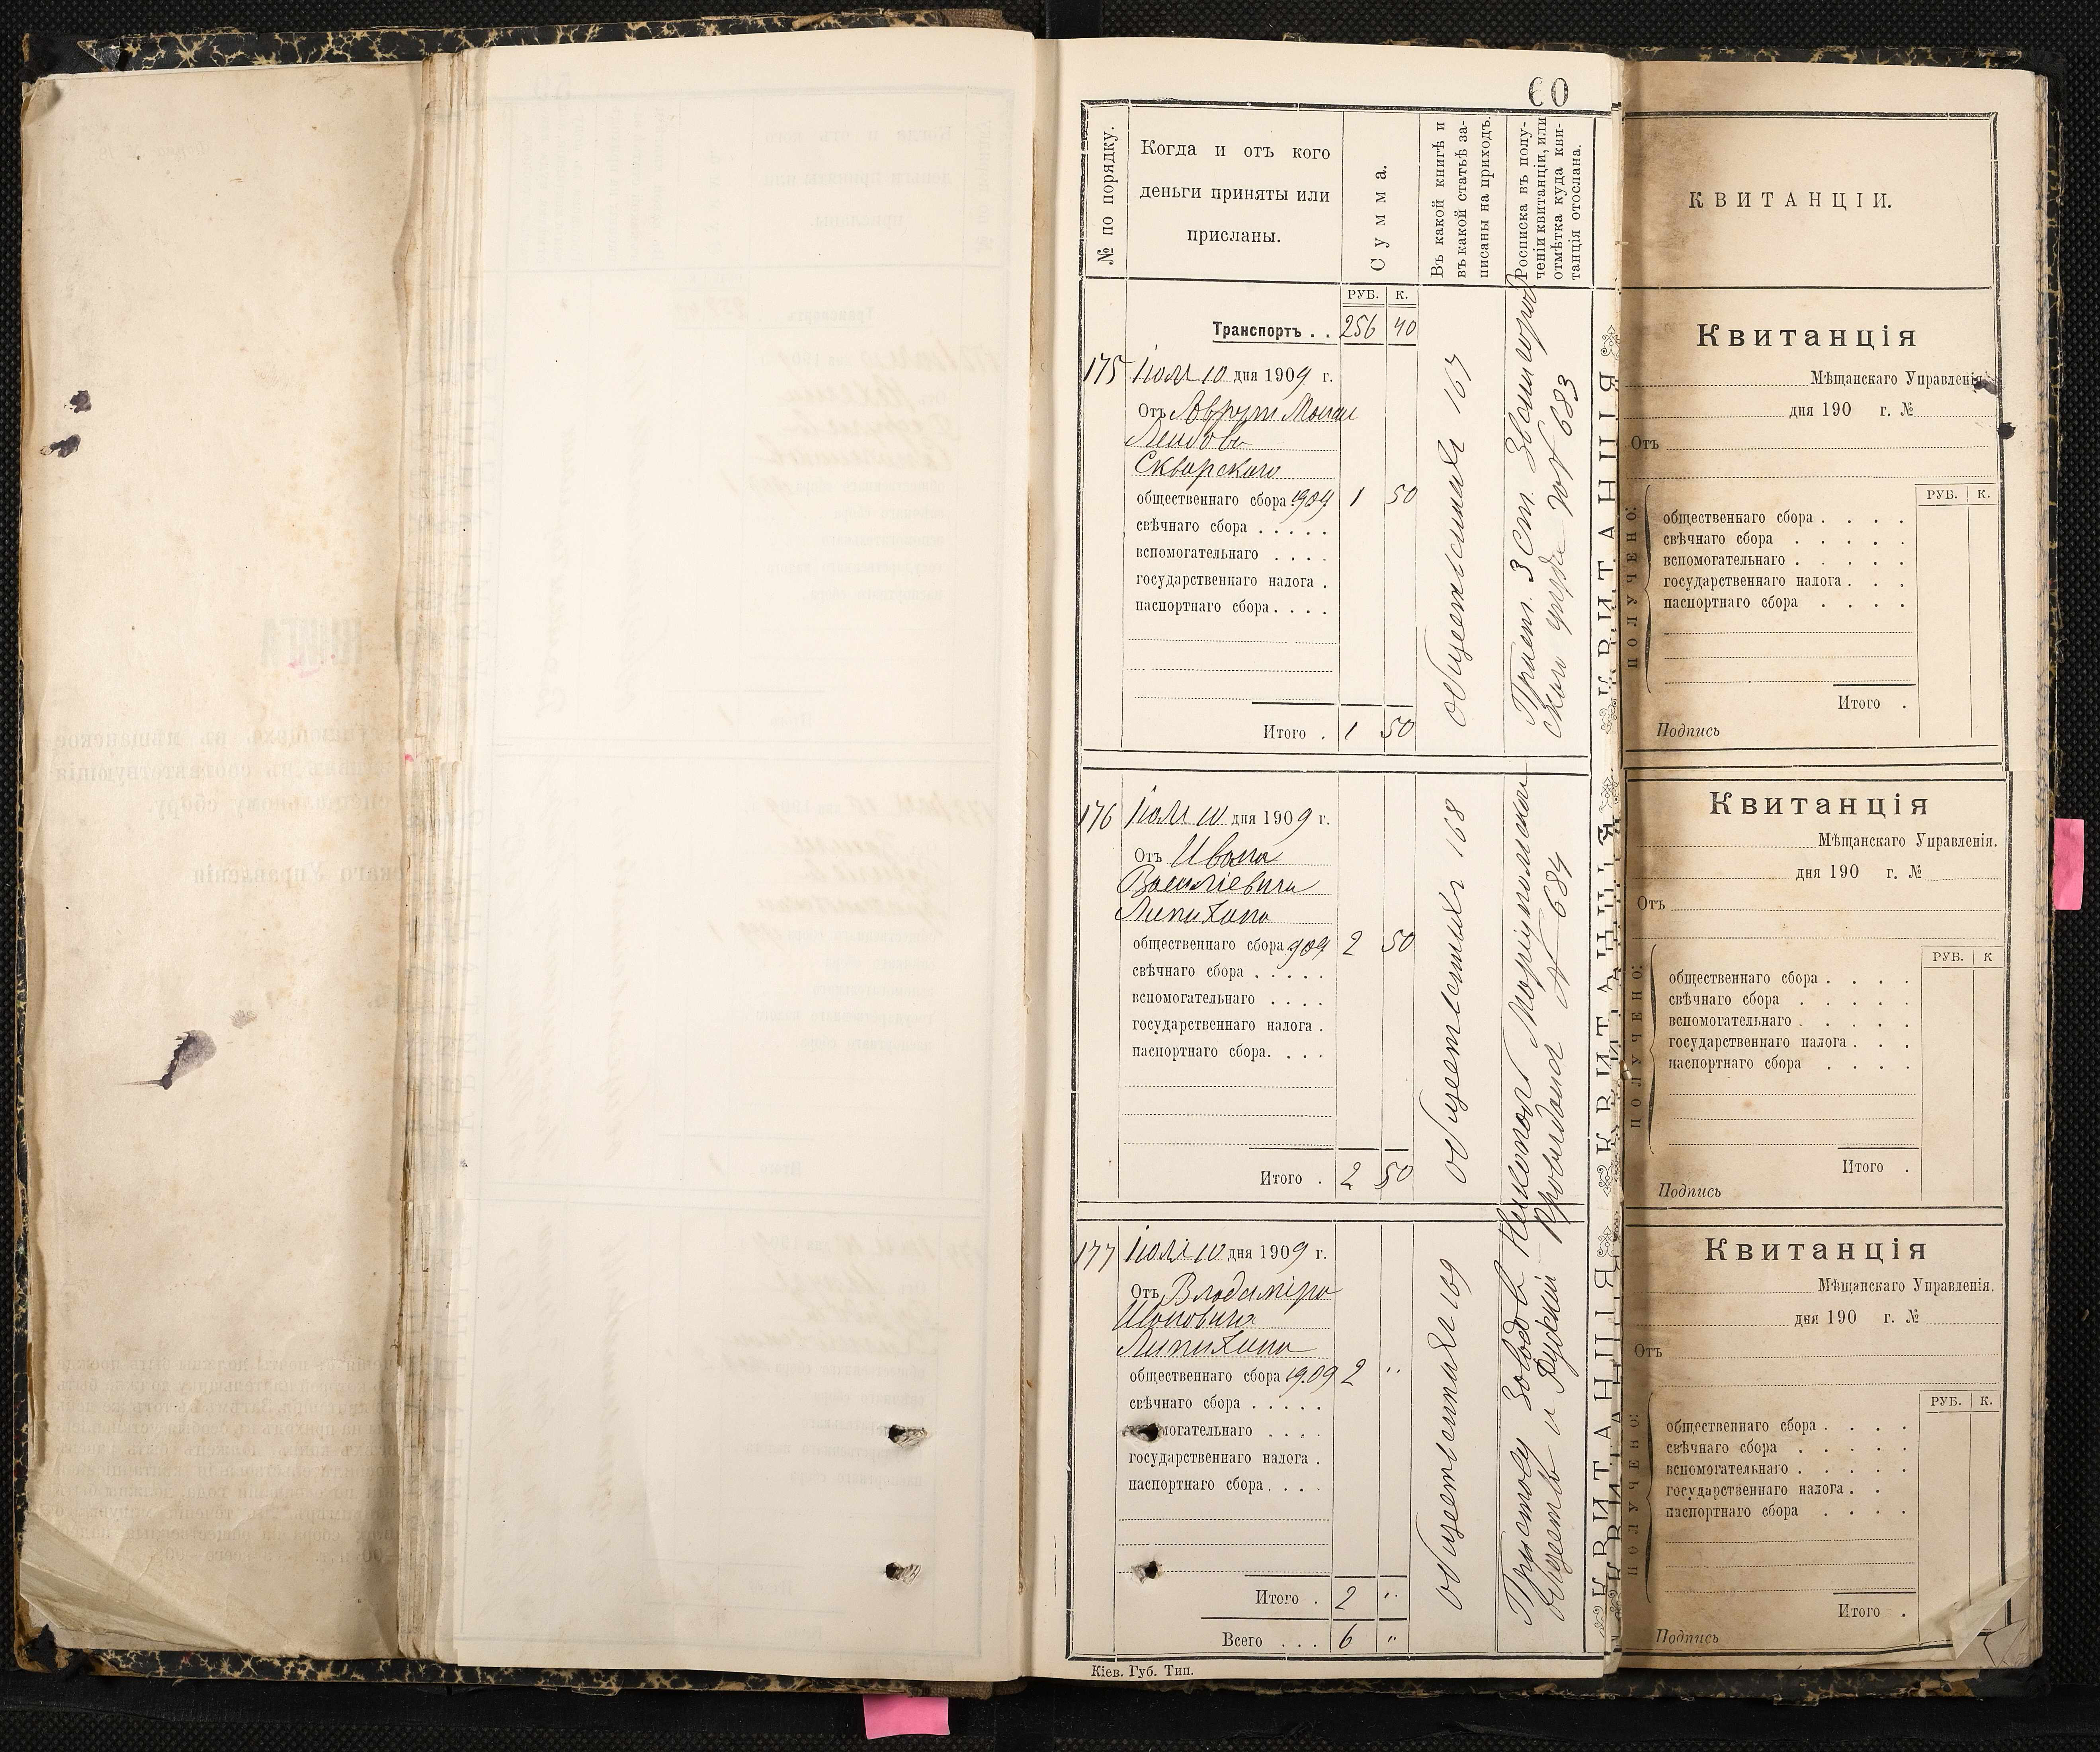 60
№ по порядку.
Когда и отъ кого
деньги приняты или
присланы.
Сумма.
Въ какой книгѣ и
въ какой статьѣ за-
писаны на приходъ.
Росписка въ полу-
ченіи квитанціи, или
отмѣтка куда кви-
танція отослана.
РУБ. К.
Транспортъ . . 256 40
175 Іюля 10 дня 1909 г.
Отъ
Лейбовъ
Сквирскаго
общественнаго сбора 1909 1 50
свѣчнаго сбора . . . . .
вспомогательнаго . . . .
государственнаго налога .
паспортнаго сбора . . . .
Итого . 1 50
167
Прист. 3 ст.
№ 683
176 Іюля 10 дня 1909 г.
Отъ Ивана
Васильевича
Липихина
общественнаго сбора 909 2 50
свѣчнаго сбора . . . . .
вспомогательнаго . . . .
государственнаго налога .
паспортнаго сбора. . . .
Итого . 2 50
168
177 Іюля 10 дня 1909 г.
Отъ Владиміра
Ивановича
Липихина
общественнаго сбора 1909 2 "
свѣчнаго сбора . . . . .
могательнаго . . . .
государственнаго налога .
паспортнаго сбора . . . .
Итого . 2 "
Всего . . . 6 "
169
Приставу Заводовъ Никополь Маріупольскаго
Общества и Русскій Провидансъ № 684
Кіев. Губ. Тип.
КВИТАНЦІЯ
КВИТАНЦІЯ
КВИТАНЦІЯ
КВИТАНЦІИ.
Квитанція
Мѣщанскаго Управленія
дня 190 г. №
Отъ
ПОЛУЧЕНО:
РУБ. К.
общественнаго сбора . . . .
свѣчнаго сбора . . . . .
вспомогательнаго . . . . .
государственнаго налога . . .
паспортнаго сбора . . . .
Итого .
Подпись
Квитанція
Мѣщанскаго Управленія.
дня 190 г. №
Отъ
ПОЛУЧЕНО:
РУБ. К
общественнаго сбора . . . .
свѣчнаго сбора . . . . .
вспомогательнаго . . . . .
государственнаго налога . . .
паспортнаго сбора . . . .
Итого .
Подпись
Квитанція
Мѣщанскаго Управленія.
дня 190 г. №
Отъ
ПОЛУЧЕНО:
РУБ. К.
общественнаго сбора . . . .
свѣчнаго сбора . . . . .
вспомогательнаго . . . . .
государственнаго налога . .
паспортнаго сбора . . . .
Итого .
Подпись